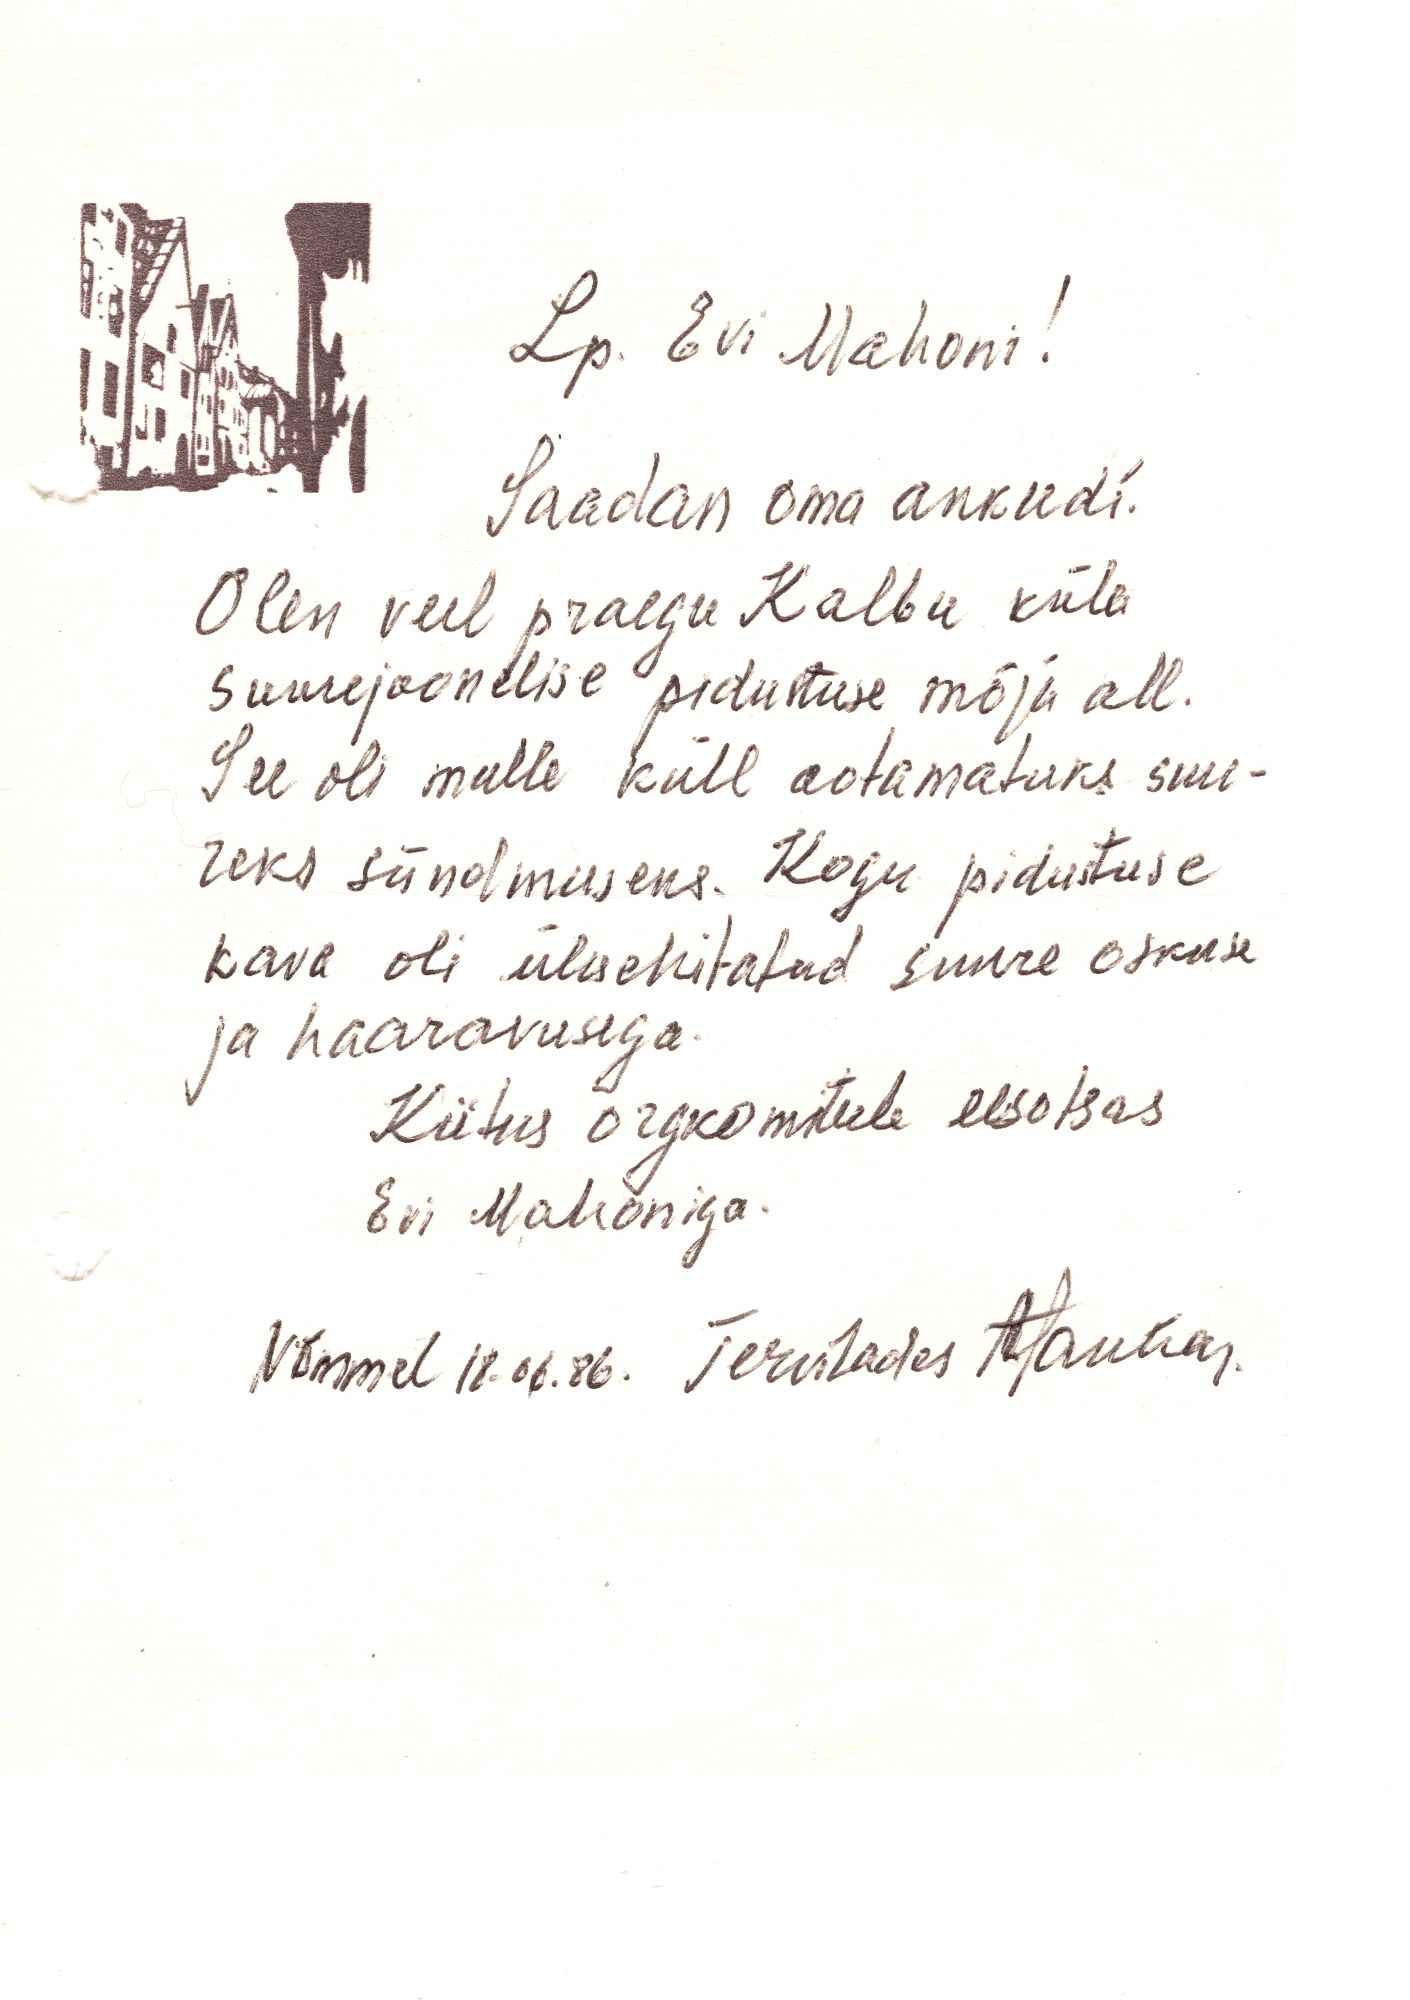 Lp. Evi Mahoni!
Saadan oma ankeedi.
Olen veel praegu Kalbu küla
suurejoonelise pidustuse mõju all.
See oli mulle küll ootamatuks suu-
reks sündmuseks. Kogu pidustuse
kava oli ülesehitatud suure oskuse
ja haaravusega.
Kiitus orgkomiteele eesotsas
Evi Mahoniga.
Nõmmel 18.06.86. Tervitades